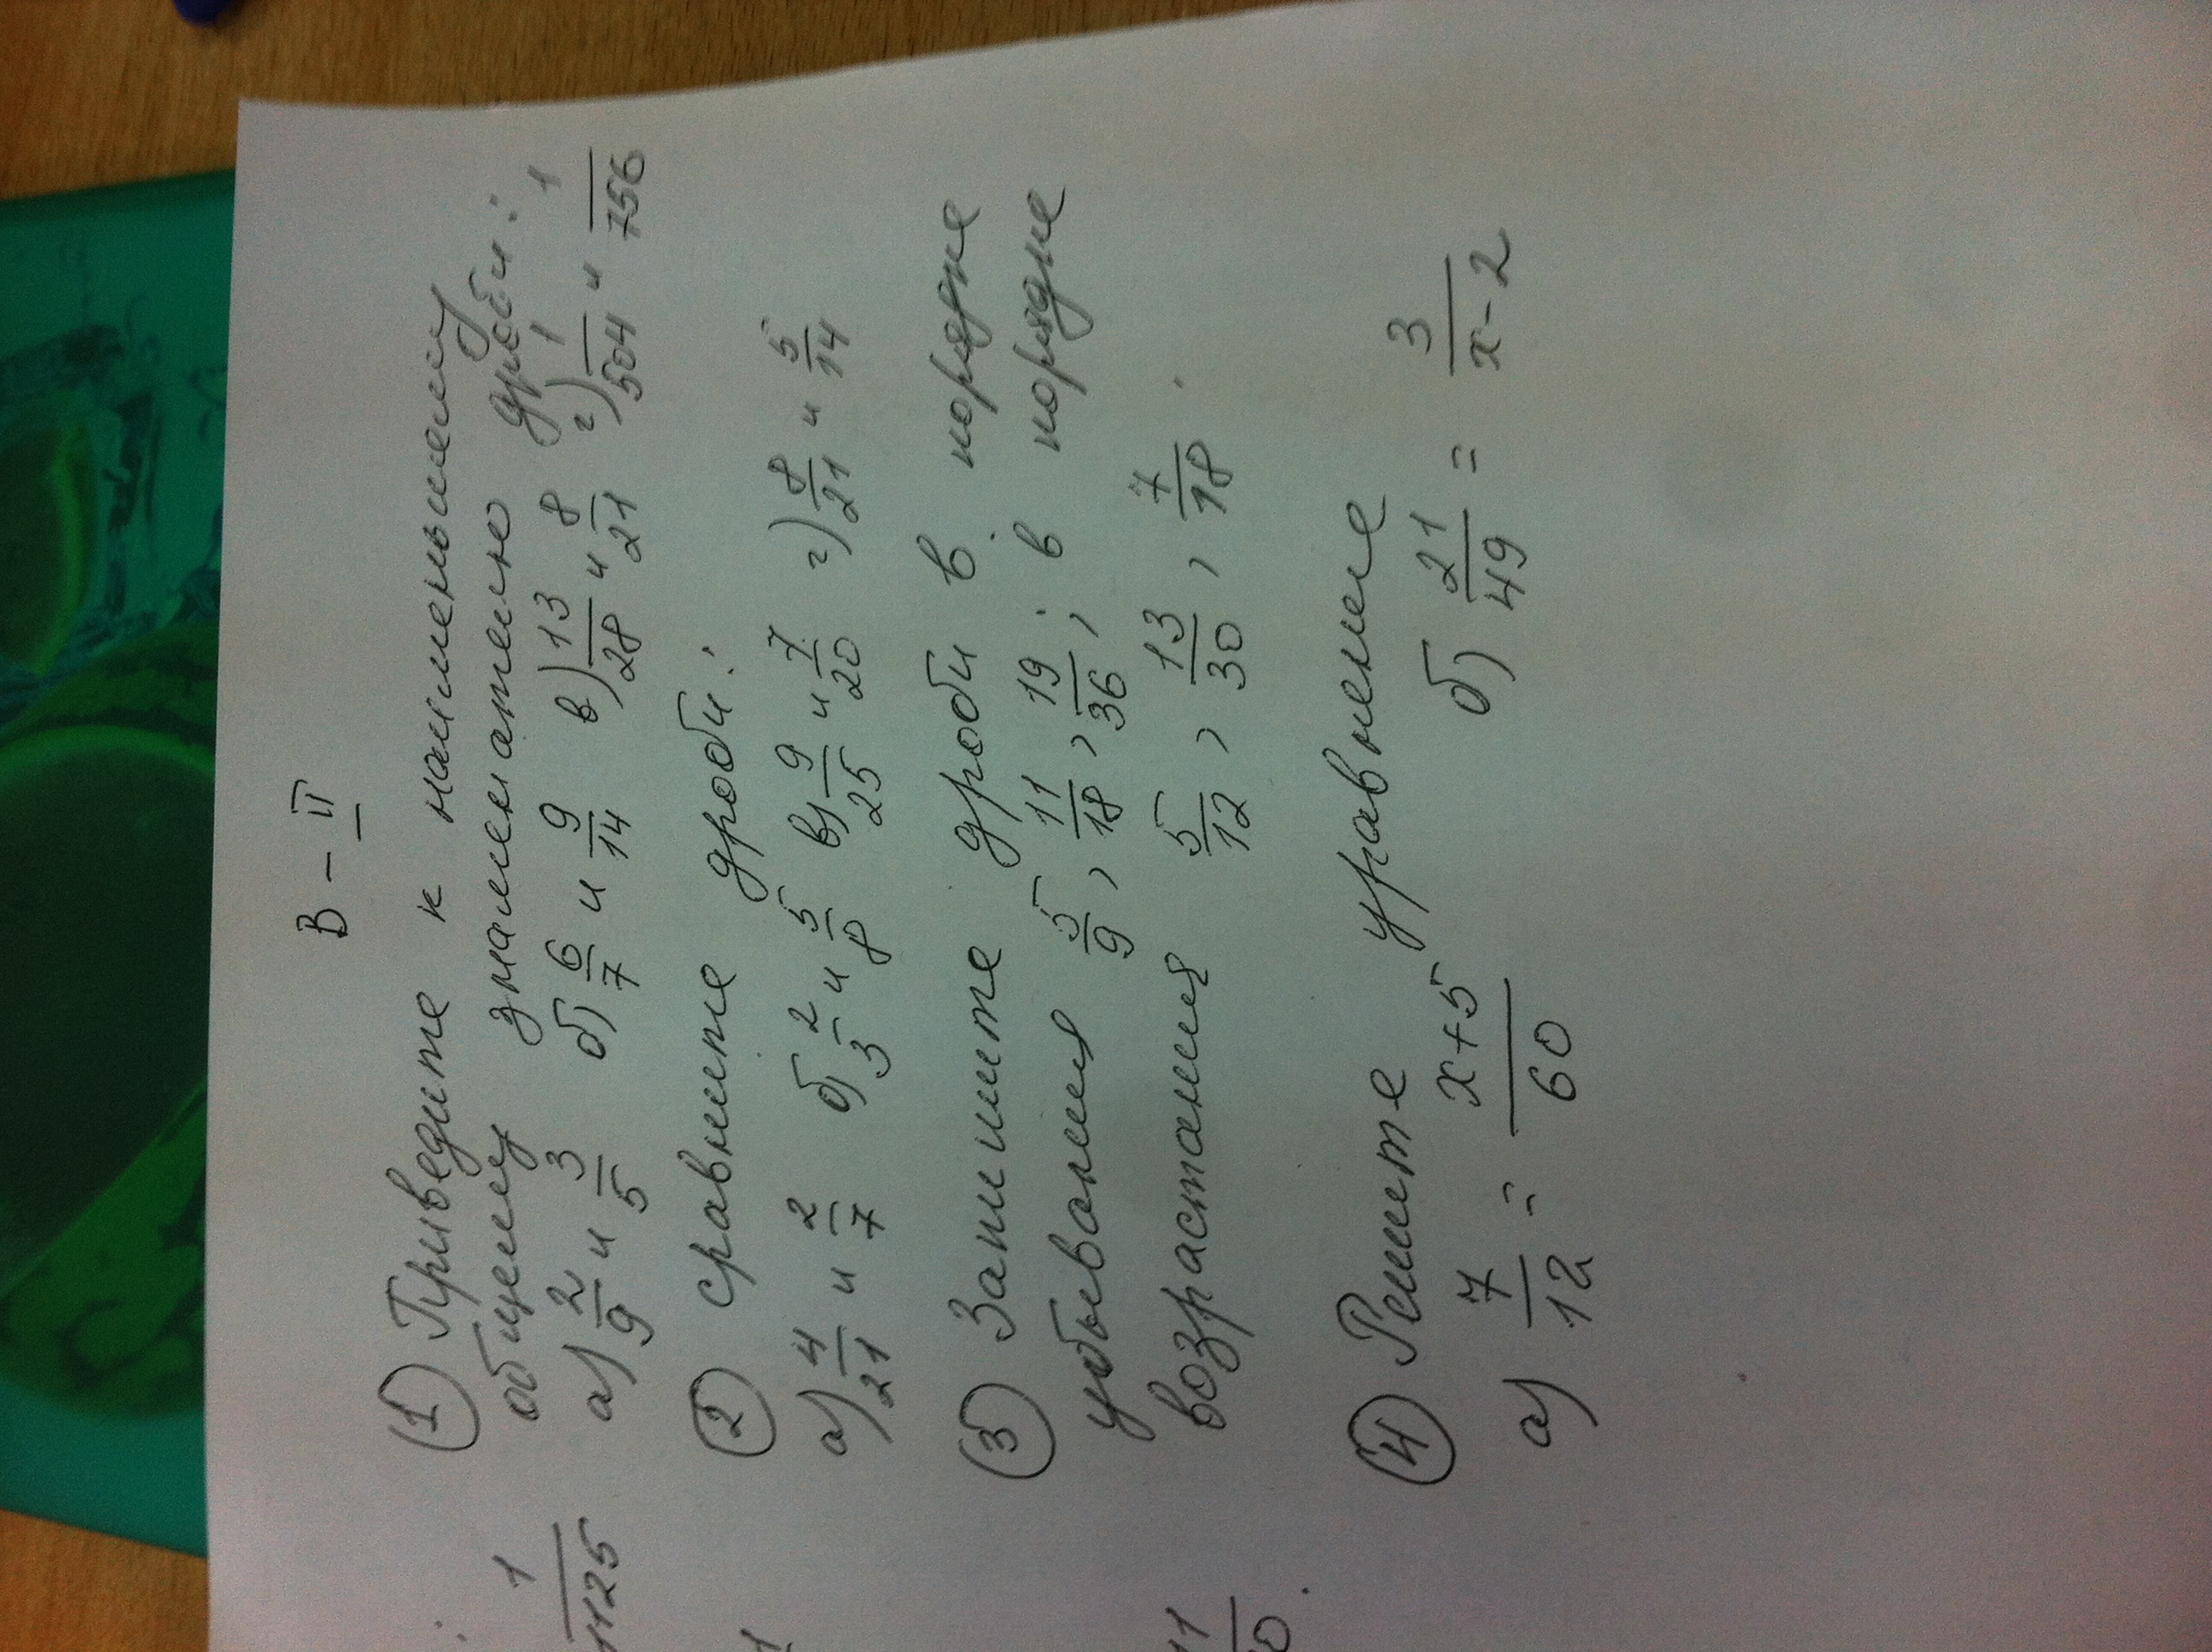 В – II
① Приведите к наименьшему
общему знаменателю дроби:
а) 2/9 и 3/5 б) 6/7 и 9/14 в) 13/28 и 8/21 г) 1/504 и 1/756
② Сравните дроби:
а) 4/21 и 2/7 б) 2/3 и 5/8 в) 9/25 и 7/20 г) 8/21 и 5/14
③ Запишите дроби в порядке
убывания 5/9, 11/18, 19/36; в порядке
возрастания 5/12, 13/30, 7/18.
④ Решите уравнение
а) 7/12 = x+5/60 б) 21/49 = 3/x-2
: 1/1125